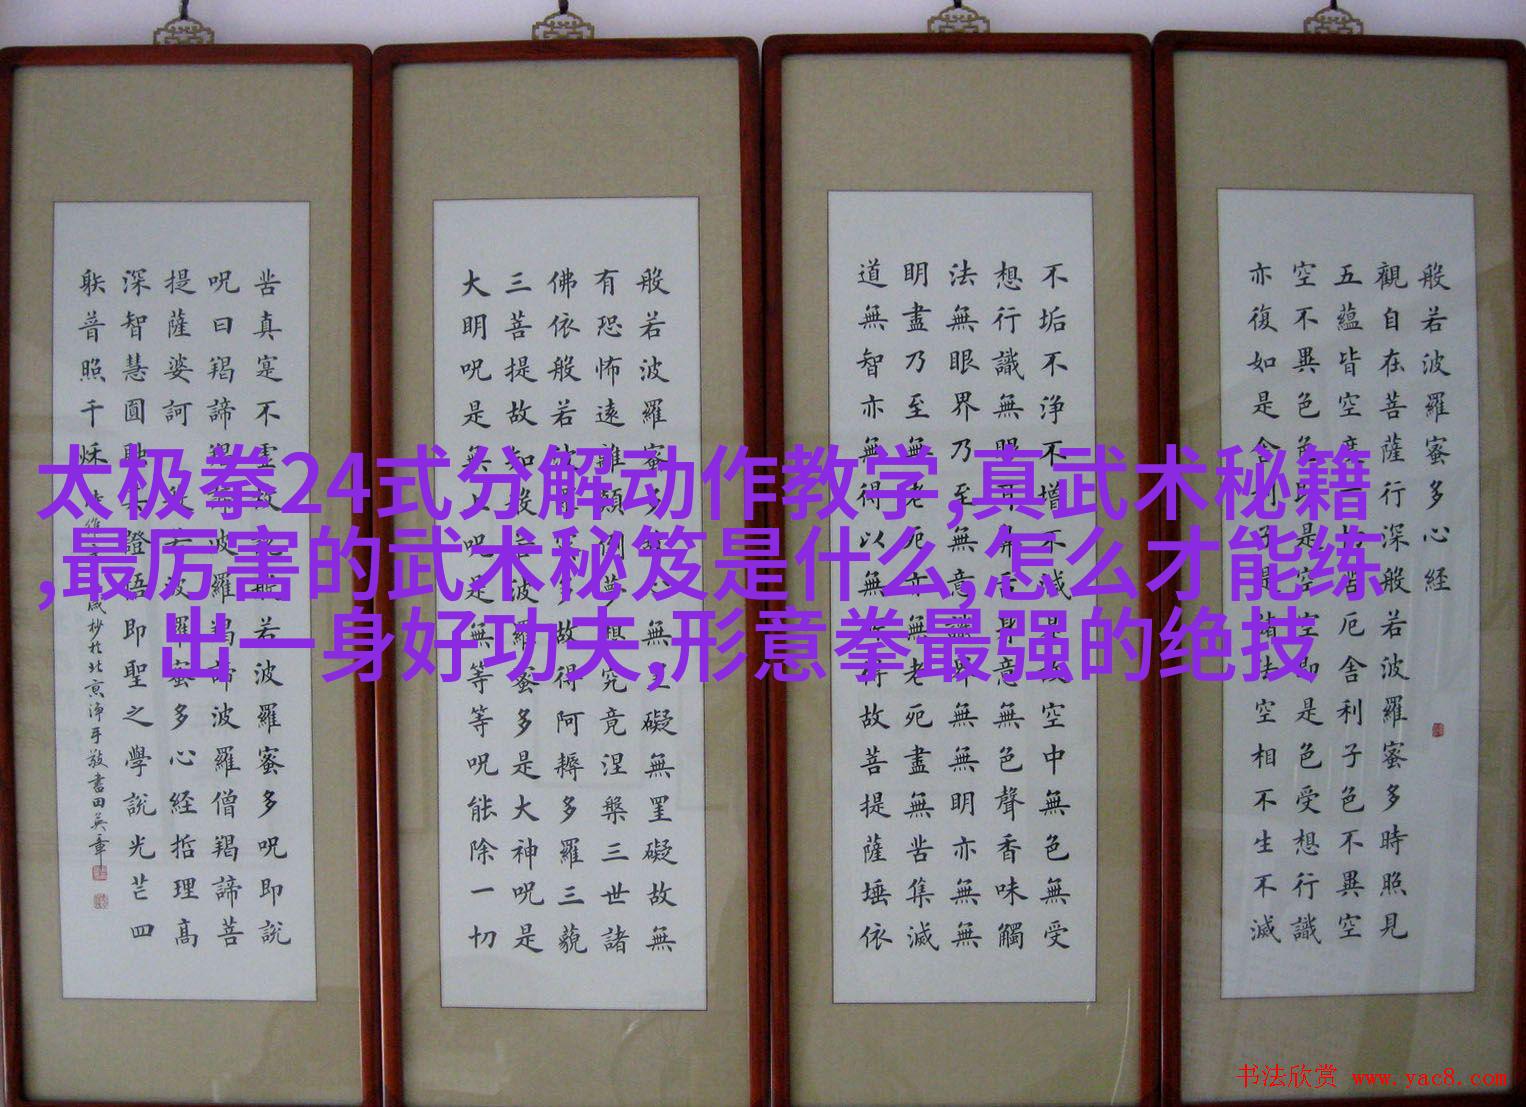 太极拳24式分解动作教学,真武术秘籍
,最厉害的武术秘笈是什么,怎么才能练
出一身好功夫,形意拳最强的绝技
般若波羅蜜多心経
觀自在菩薩行深般若波羅蜜多時照見
五蘊皆空苦厄舍利子色不異空
空不異色色即是空空即是色受想行識
亦復如是舍利子是諸法空相不生不滅
不垢不浄不增不減是故空中無色無受
想行識無眼耳鼻舌身意無色聲香味觸
法無眼界乃至無意識界無無明亦無無
明盡乃至無老死亦無老死盡無苦集滅
道無智亦無得以無所得故菩提薩埵依
般若波羅蜜多故心無罣礙無罣礙故無
有恐怖遠離顛倒夢想究竟涅槃三世諸
佛依般若波羅蜜多故得阿耨多羅三藐
三菩提故知般若波羅蜜多是大神呪是
大明呪是無上呪是無等等呪能除一切
苦真寔不虛故說般若波羅蜜多呪即說
呪曰羯諦羯諦波羅羯諦波羅僧羯諦菩
提薩婆訶般若波羅蜜多心経哲理高
深智慧圓融證悟即聖之學說光芒四
普照千秋
歲抄於北京敬書田英章
书法欣赏 www.yac8.com